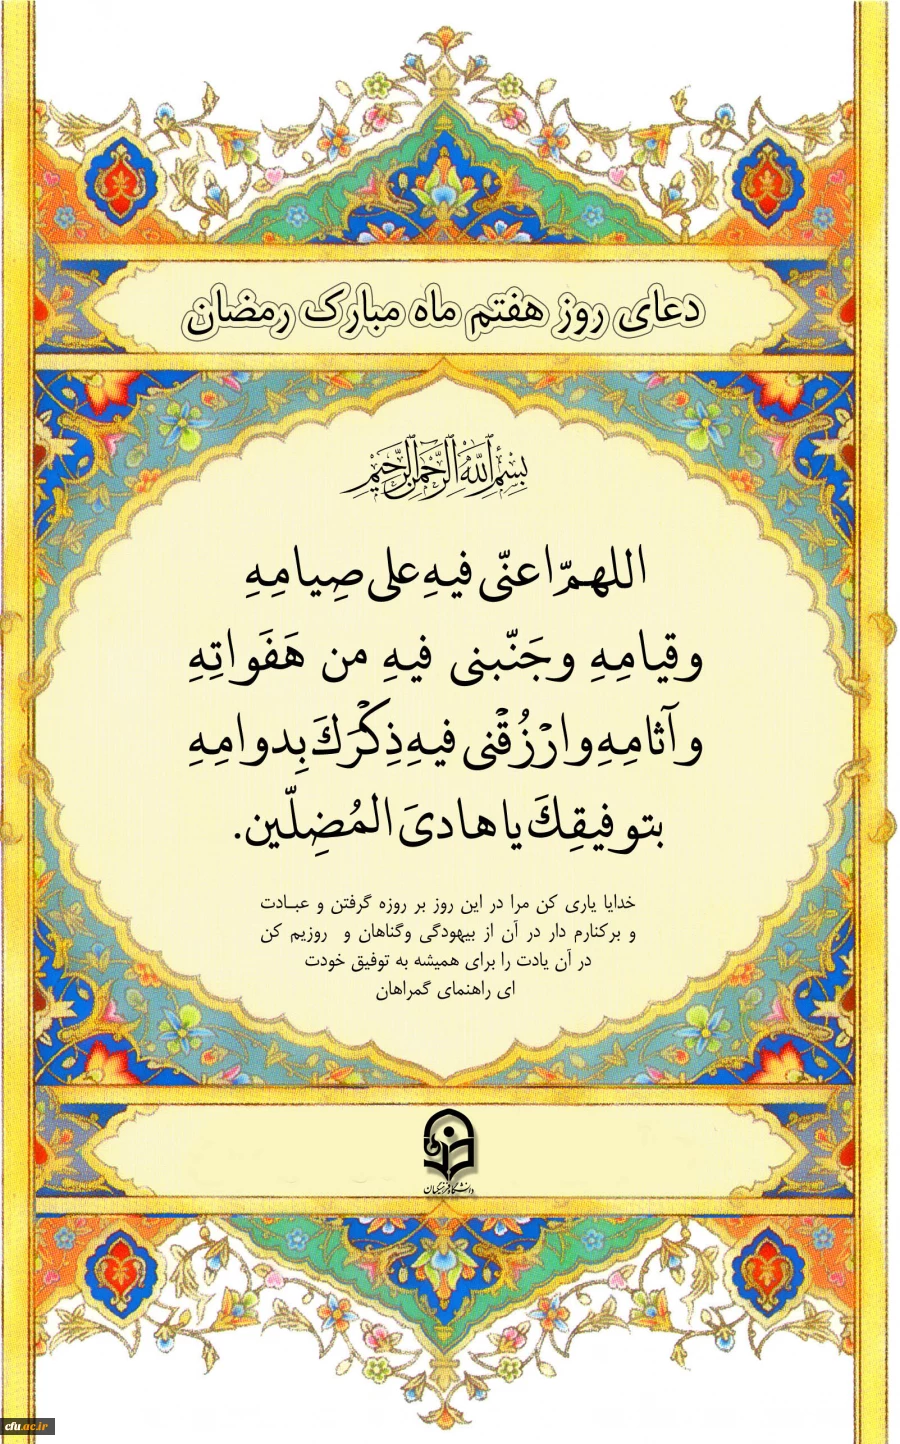 دعای روز هفتم ماه مبارک رمضان
بِسْمِ اللهِ الرَّحْمنِ الرَّحِیمِ
اللهمّ اعنّی فیهِ علی صِیامِهِ
وقیامِهِ وجَنّبنی فیهِ من هَفَواتِهِ
وآثامِهِ وارْزُقْنی فیهِ ذِکْرَكَ بِدوامِهِ
بتوفیقِكَ یا هادیَ المُضِلّین.
خدایا یاری کن مرا در این روز بر روزه گرفتن و عبـادت
و برکنارم دار در آن از بیهودگی وگناهان و روزیم کن
در آن یادت را برای همیشه به توفیق خودت
ای راهنمای گمراهان
دانشگاه فرهنگیان
cfu.ac.ir